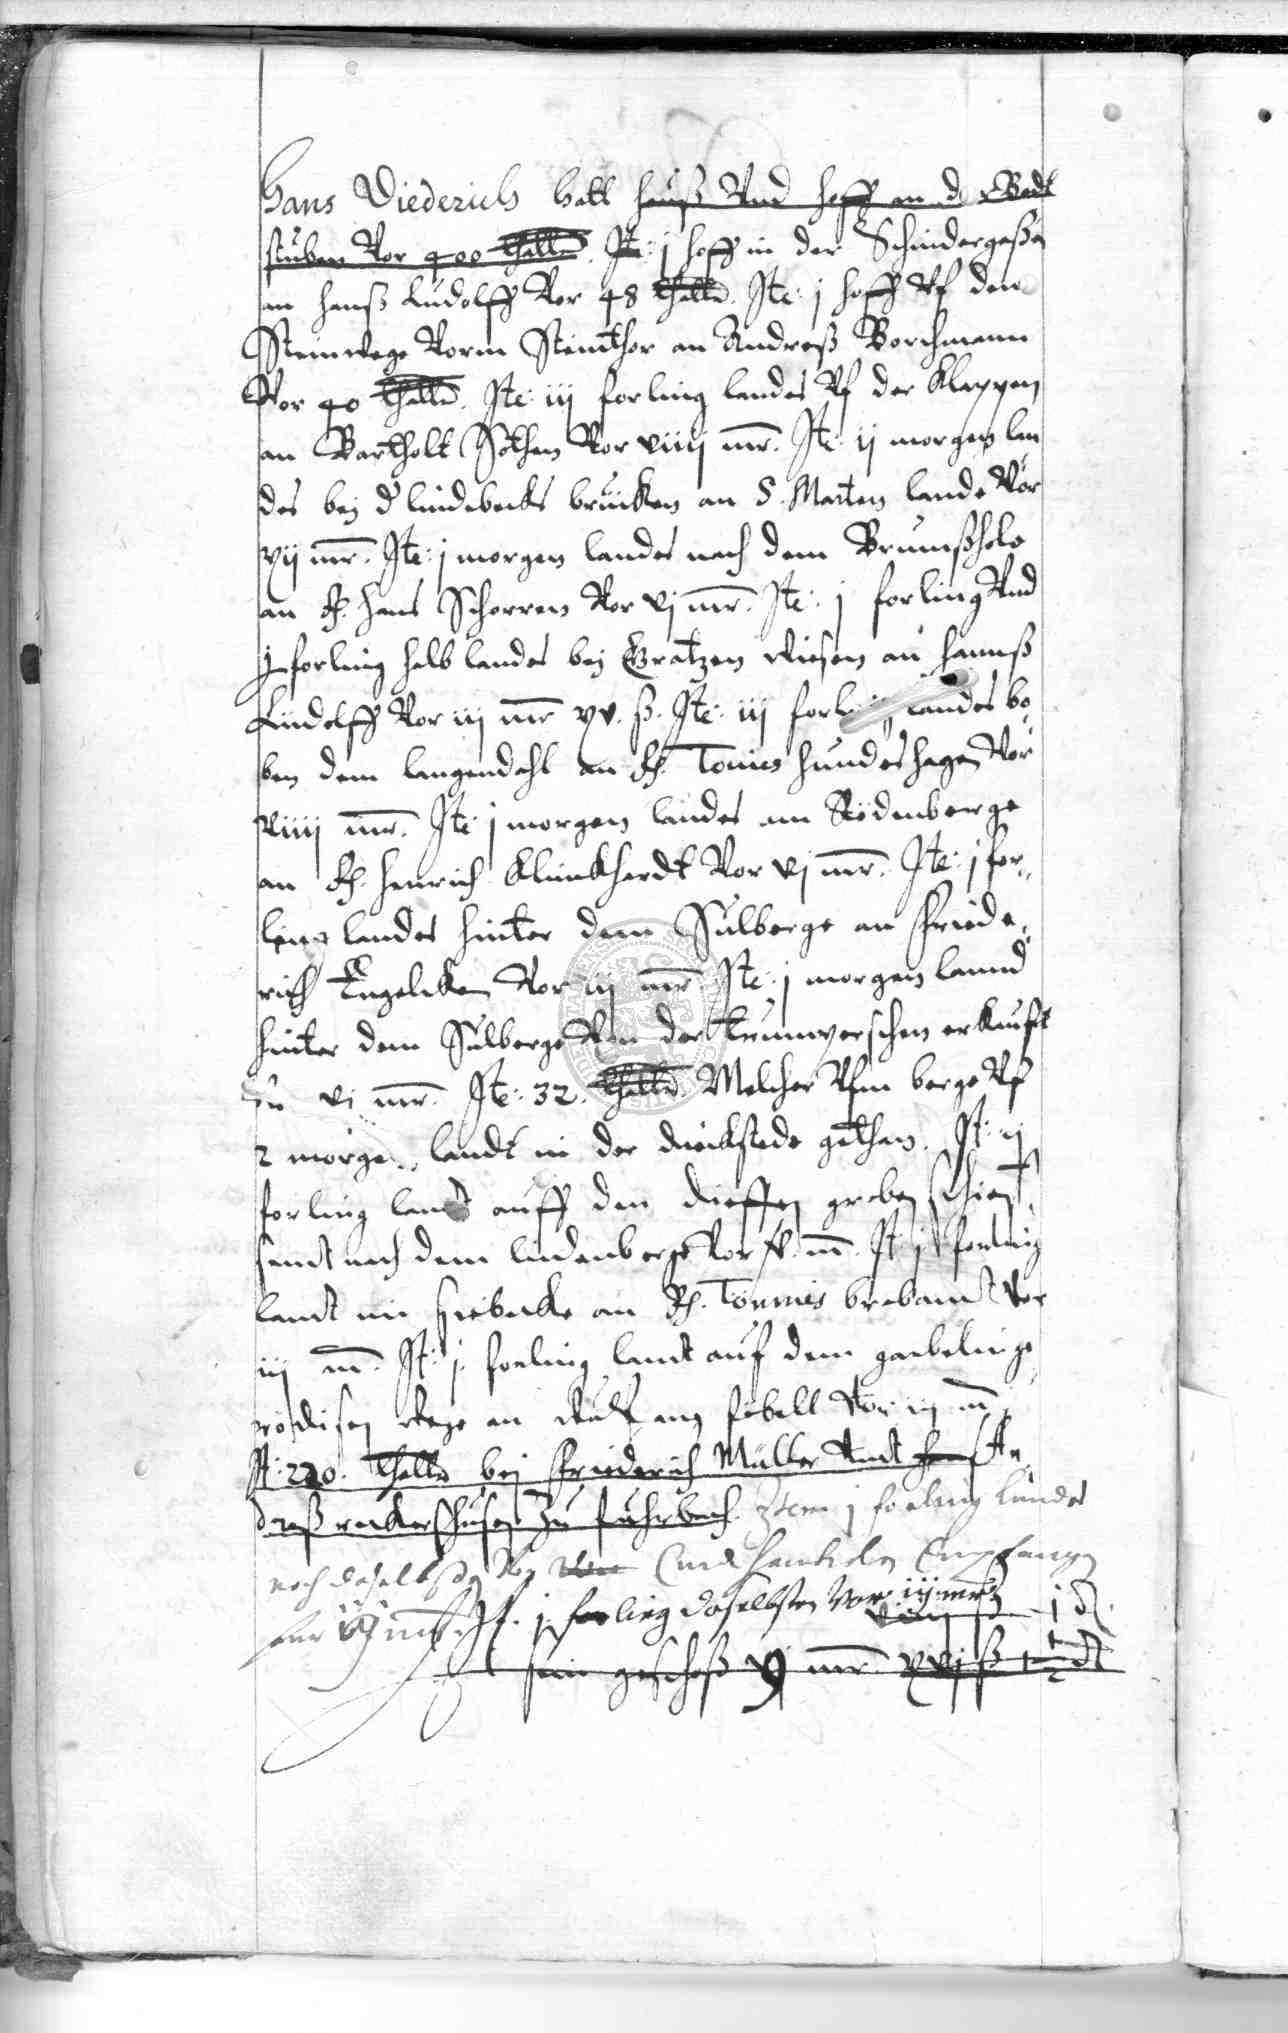 Hans Diederich hatt hauß Vnd hoff an d Badt
stuben Vor 400 thalr. Ite: j hoff in der Schindergaßen
an Hanß Ludolff Vor 48 thalr. Ite: j hoff Vf dem
Steinwege Vorm Steinthor an Andreß Borchmann
Vor 40 thalr. Ite: iij forling landes Vf der Klappen
an Bartholt Sothen Vor viiij mr. Ite: ij morgen lan
des bej d lindebecks brucken an S. Marten lande Vor
xij mr. Ite: j morgen landes nach dem
an H. Hans Schorren Vor vj mr. Ite: j forling Vnd
j forling halb landes bej Gratzen wiesen an Hannß
Ludolff Vor iij mr xv. ß. Ite: iij forling landes bo
ben dem langendahl an H. Tonies Hundeshagen Vor
viiij mr. Ite: j morgen landes am Rodenberge
an H. Henrich Klinkhardt Vor vj mr. Ite: j for„
ling landes hinter dem Sulberge an Friede„
rich Engelcken Vor iij mr. Ite: j morgen lannd
hinter dem Sulberge Von der erkaufft
Zu vj mr. Ite: 32. thalr. Melcher Vfm berge Vf
2 morgen landt in der gethan. It: ij
forling landt auff den dieffen graben
nach dem lindenberge Vor m. It j forling
landt im an H. Tönnies brabandt Vor
iij m. It: j. forling landt auf dem
wege an Vor iij m
It: 220. thalr bej Friederich Müller Vndt An
dreß Zu fuhrbach. Item j forling landes
noch daselbst Von Empfangen
It. j. forling daselbsten Vor iij mr
sein geschoß mr xvj ß